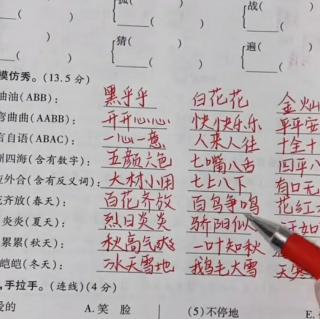 狐( )
战( )
( ) ( ) ( ) ( )
猜( )
遍( )
( ) ( ) ( ) ( )
模仿秀。(13.5分)
油油(ABB): 黑乎乎 白花花 金灿
弯曲曲(AABB): 开开心心 快快乐乐 平平安
言自语(ABAC): 一心一意 人来人往 十全十
湖四海(含有数字): 五颜六色 七嘴八舌 四平八
应外合(含有反义词): 大材小用 七上八下 有口无
花齐放(春天): 百花齐放 百鸟争鸣 花红
炎炎(夏天): 烈日炎炎 骄阳似 如
累累(秋天): 秋高气爽 一叶知秋
皑皑(冬天): 冰天雪地 鹅毛大雪 天寒
,手拉手。(连线)(4分)
爱的 A.笑 脸 (5)不停地 E.